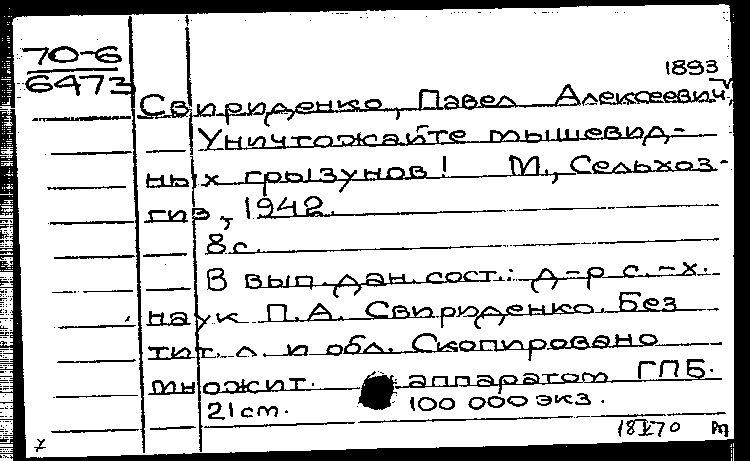 70-6
6473
1893
Свириденко, Павел Алексеевич,
Уничтожайте мышевид-
ных грызунов! М., Сельхоз-
гиз, 1942.
8 с.
В вып. дан. сост.: д-р с.-х.
наук П.А. Свириденко. Без
тит. л. и обл. Скопировано
множит. аппаратом ГПБ.
21 см. 100 000 экз.
18 V 70